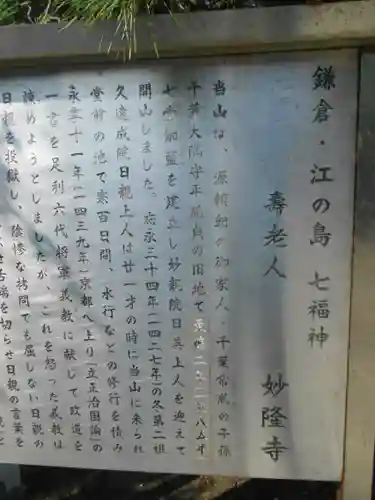 鎌倉・江の島 七福神
壽老人 妙隆寺
当山は、源頼朝の御家人・千葉常胤の子孫
千葉大隅守平胤貞の旧地で
七堂伽藍を建立し妙親院日英上人を迎えて
開山しました。応永三十四年(一四二七年)の冬第二祖
久遠成院日親上人は廿一才の時に当山に来られ
堂前の池で寒百日間、水行などの修行を積み
永享十一年(一四三九年)京都へ上り「立正治国論」の
一書を足利六代将軍義教に献じて政道を
諫めようとしましたが、これを怒った義教は
日親を投獄し、陰惨な拷問でも屈しない日親の
舌端を切らせ日親の言葉を